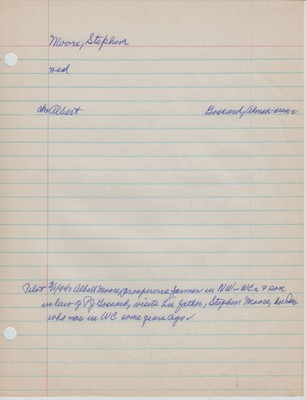 Moore, Stephen
wed
ch: Albert Gossard,
Pilot Albert Moore, prosperous farmer in NW-WCo & son
in law of Gossard, visits his father, Stephen Moore,
who was in WC some years ago